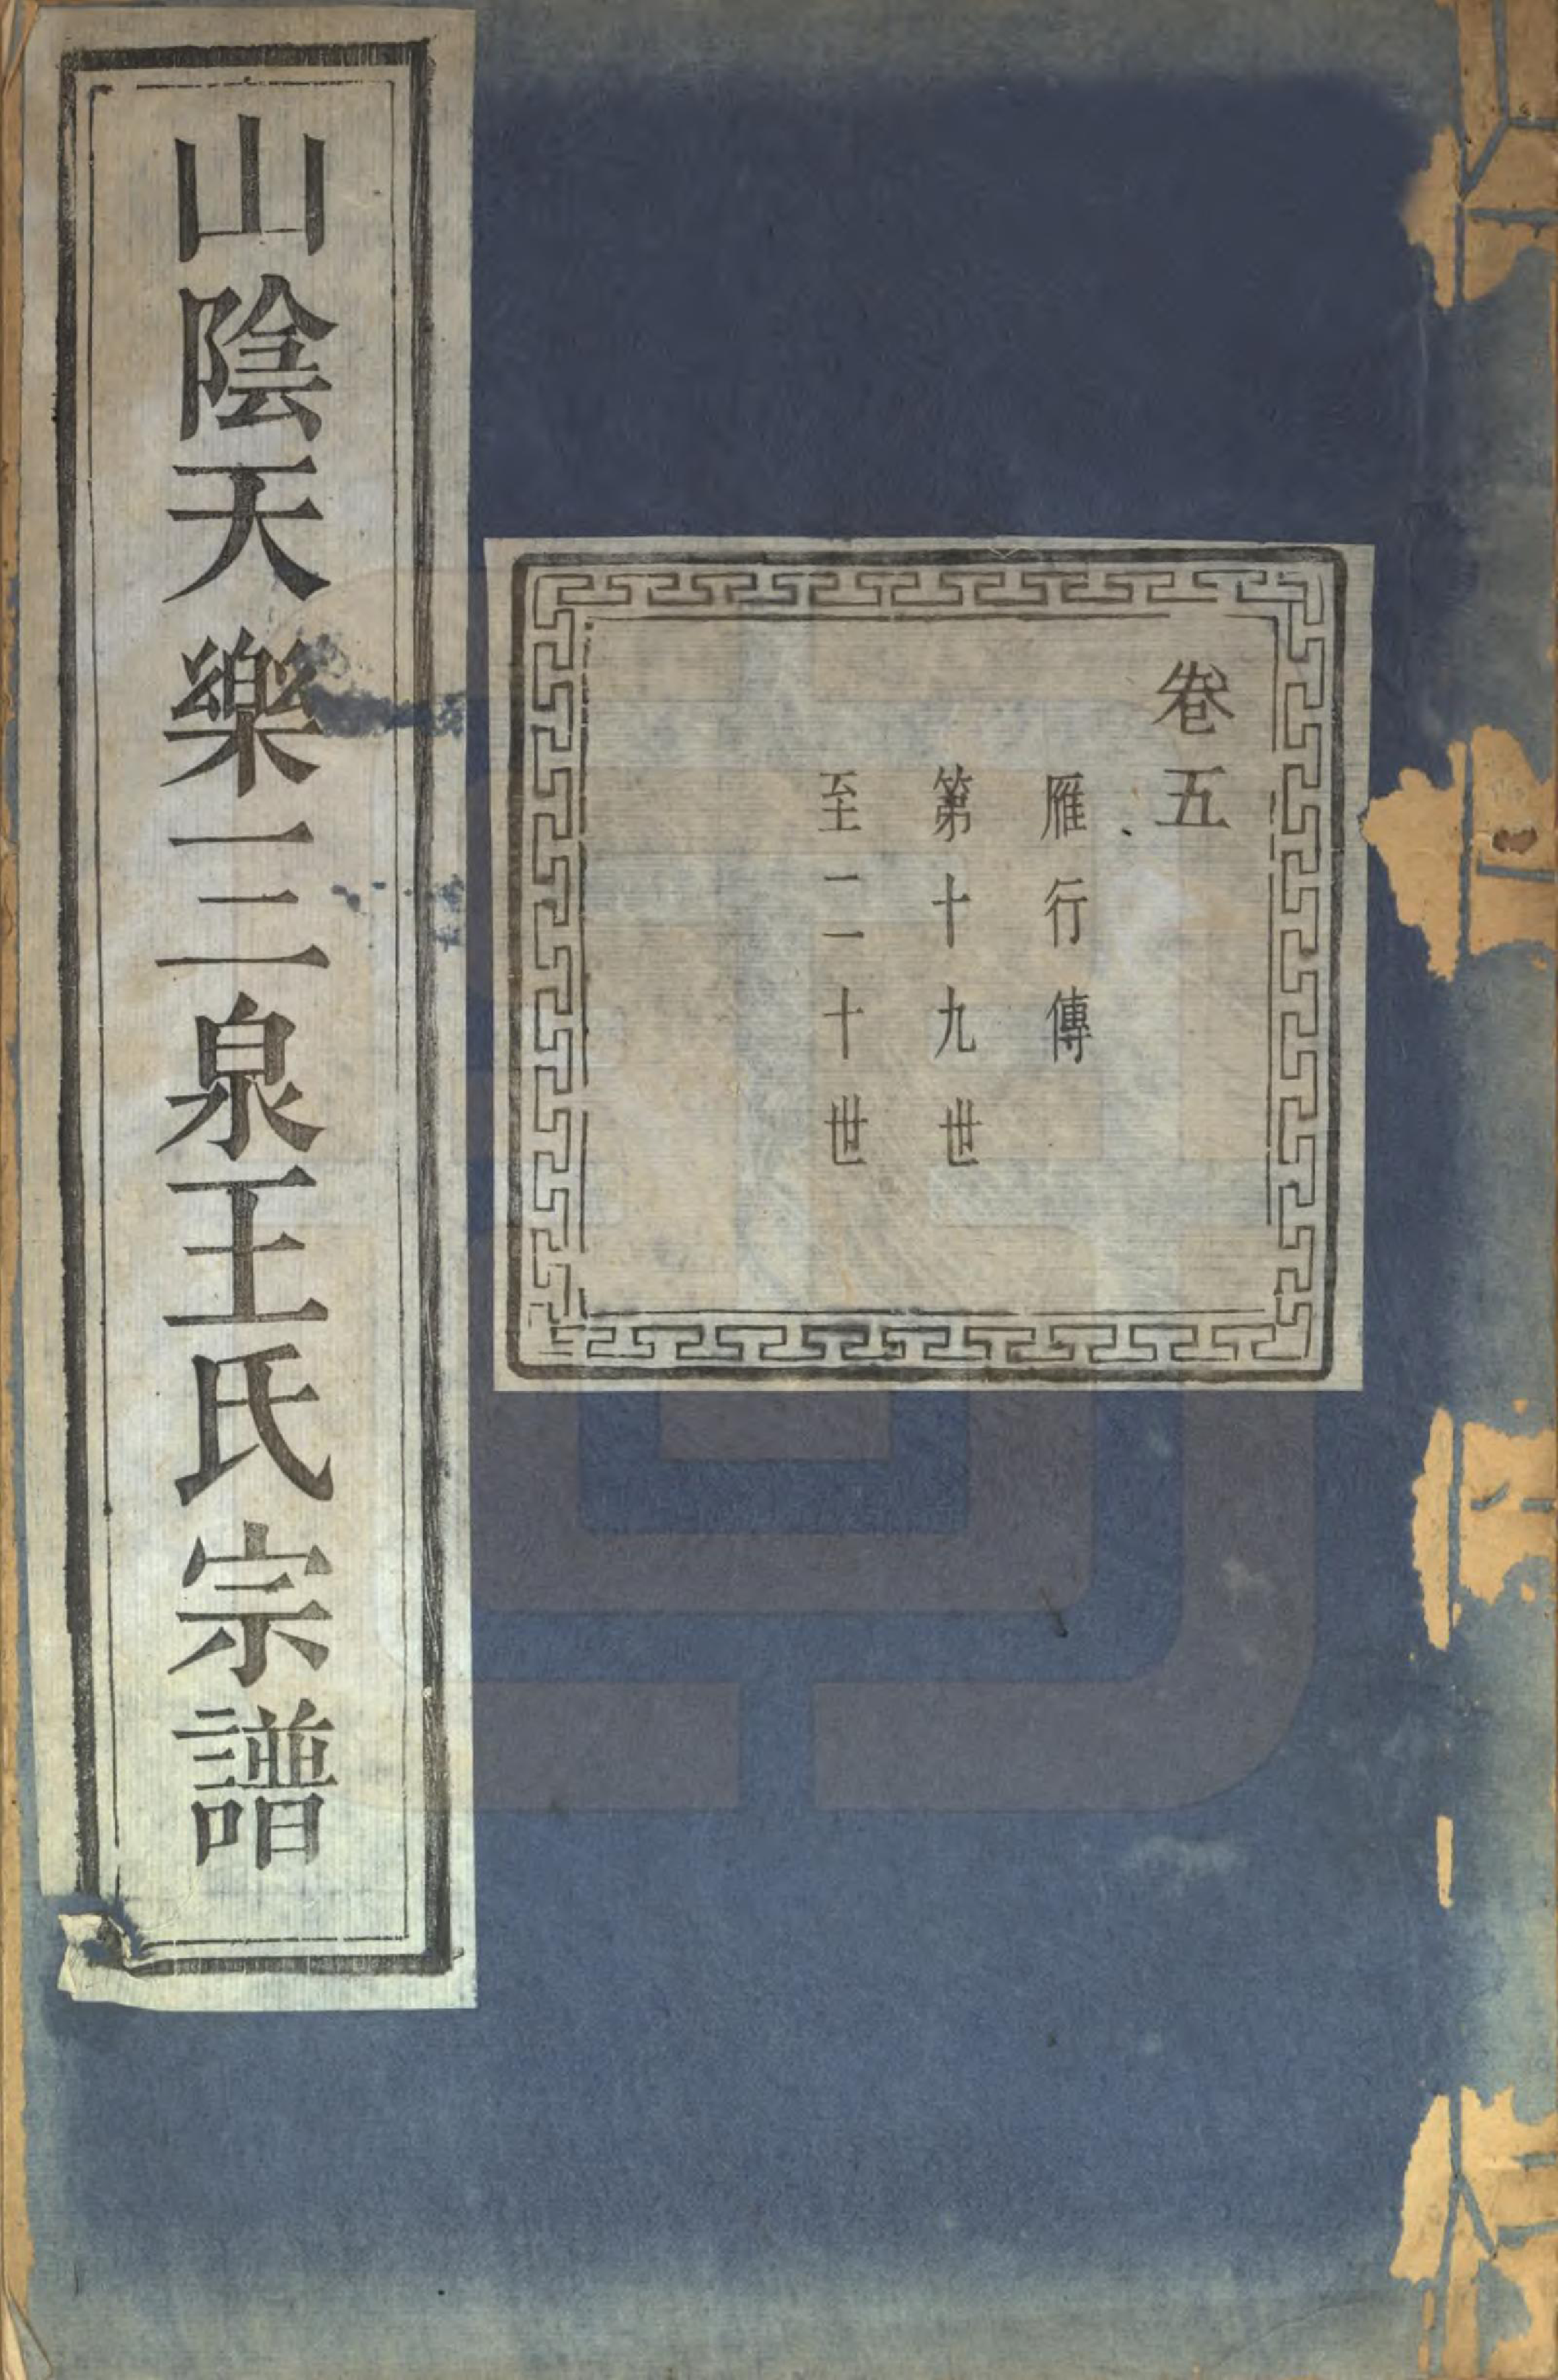 卷五
雁行傳
第十九世
至二十世
山陰天樂三泉王氏宗譜